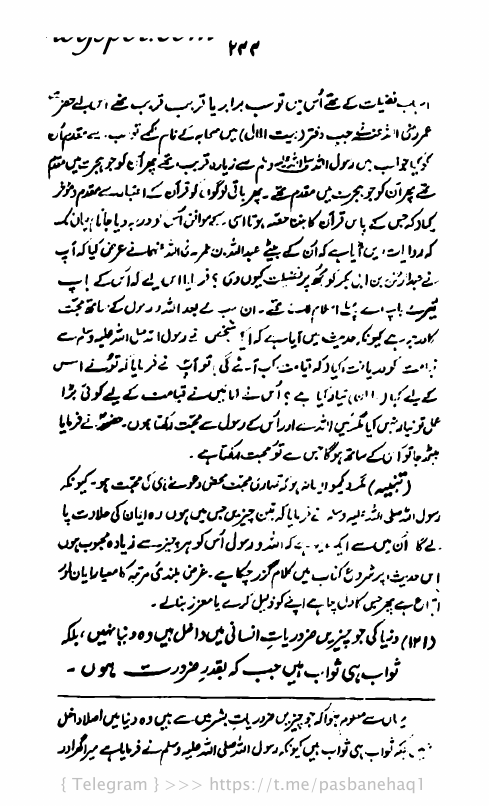 ۲۴۴
فضیلت کے تھے اُس میں تو سب برابر یا قریب قریب تھے اس لیے حضرت
عمر رضی اللہ عنہ نے جب دفتر (بیت المال) میں صحابہ کے نام لکھے تو سب سے مقدم اُن
کو کیا جو اب میں رسول اللہ صلی اللہ علیہ وسلم سے زیادہ قریب تھے پھر اُن کو جو ہجرت میں مقدم
تھے پھر اُن کو جو ہجرت میں مقدم تھے۔ پھر باقی لوگوں کو قرآن کے اعتبار سے مقدم و مؤخر
کیا کہ جس کے پاس قرآن کا جتنا حصہ ہوتا اسی کے موافق اُس کو درجہ دیا جاتا یہاں تک
کہ روایات میں آیا ہے کہ اُن کے بیٹے عبداللہ بن عمر رضی اللہ عنہما نے عرض کیا کہ آپ
نے عبدالرحمٰن بن ابی بکر کو مجھ پر فضیلت کیوں دی؟ فرمایا اس لیے کہ اُس کے باپ
تیرے باپ سے پہلے اسلام لائے تھے۔ ان سب کے بعد اللہ و رسول کے ساتھ محبت
کا درجہ ہے کیونکہ حدیث میں آیا ہے کہ ایک شخص نے رسول اللہ صلی اللہ علیہ وسلم سے
قیامت کو دریافت کیا کہ قیامت کب آئے گی، تو آپ نے فرمایا کہ تو نے اس
کے لیے کیا سامان تیار کیا ہے؟ اُس نے کہا میں نے قیامت کے لیے کوئی بڑا
عمل تو تیار نہیں کیا مگر میں اللہ سے اور اُس کے رسول سے محبت رکھتا ہوں۔ حضورؐ نے فرمایا
بیٹھ جا تو اُن کے ساتھ ہو گا جس سے تو محبت رکھتا ہے۔
(تنبیہ) مگر دیکھو ایسا نہ ہو کہ تمہاری محبت محض دعوے ہی کی محبت ہو۔ کیونکہ
رسول اللہ صلی اللہ علیہ وسلم نے فرمایا کہ تین چیزیں جس میں ہوں وہ ایمان کی حلاوت پا
لے گا اُن میں سے ایک یہ ہے کہ اللہ و رسول اُس کو ہر چیز سے زیادہ محبوب ہوں
اس حدیث پر شروع کتاب میں کلام گزر چکا ہے۔ غرض بلندی مرتبہ کا معیار ایمان اور
اتباع ہے پھر جس کا دل چاہے اپنے کو ذلیل کرے یا معزز بنا لے۔
(۱۲۱) دنیا کی جو چیزیں ضروریاتِ انسانی میں داخل ہیں وہ دنیا نہیں، بلکہ
ثواب ہی ثواب ہیں جب کہ بقدرِ ضرورت ہوں۔
یہاں سے معلوم ہوا کہ جو چیزیں ضروریاتِ بشر میں سے ہیں وہ دنیا میں اصلا داخل
نہیں بلکہ ثواب ہی ثواب ہیں کیونکہ رسول اللہ صلی اللہ علیہ وسلم نے فرمایا ہے میرا گھر اور
{ Telegram } >>> https://t.me/pasbanehaq1